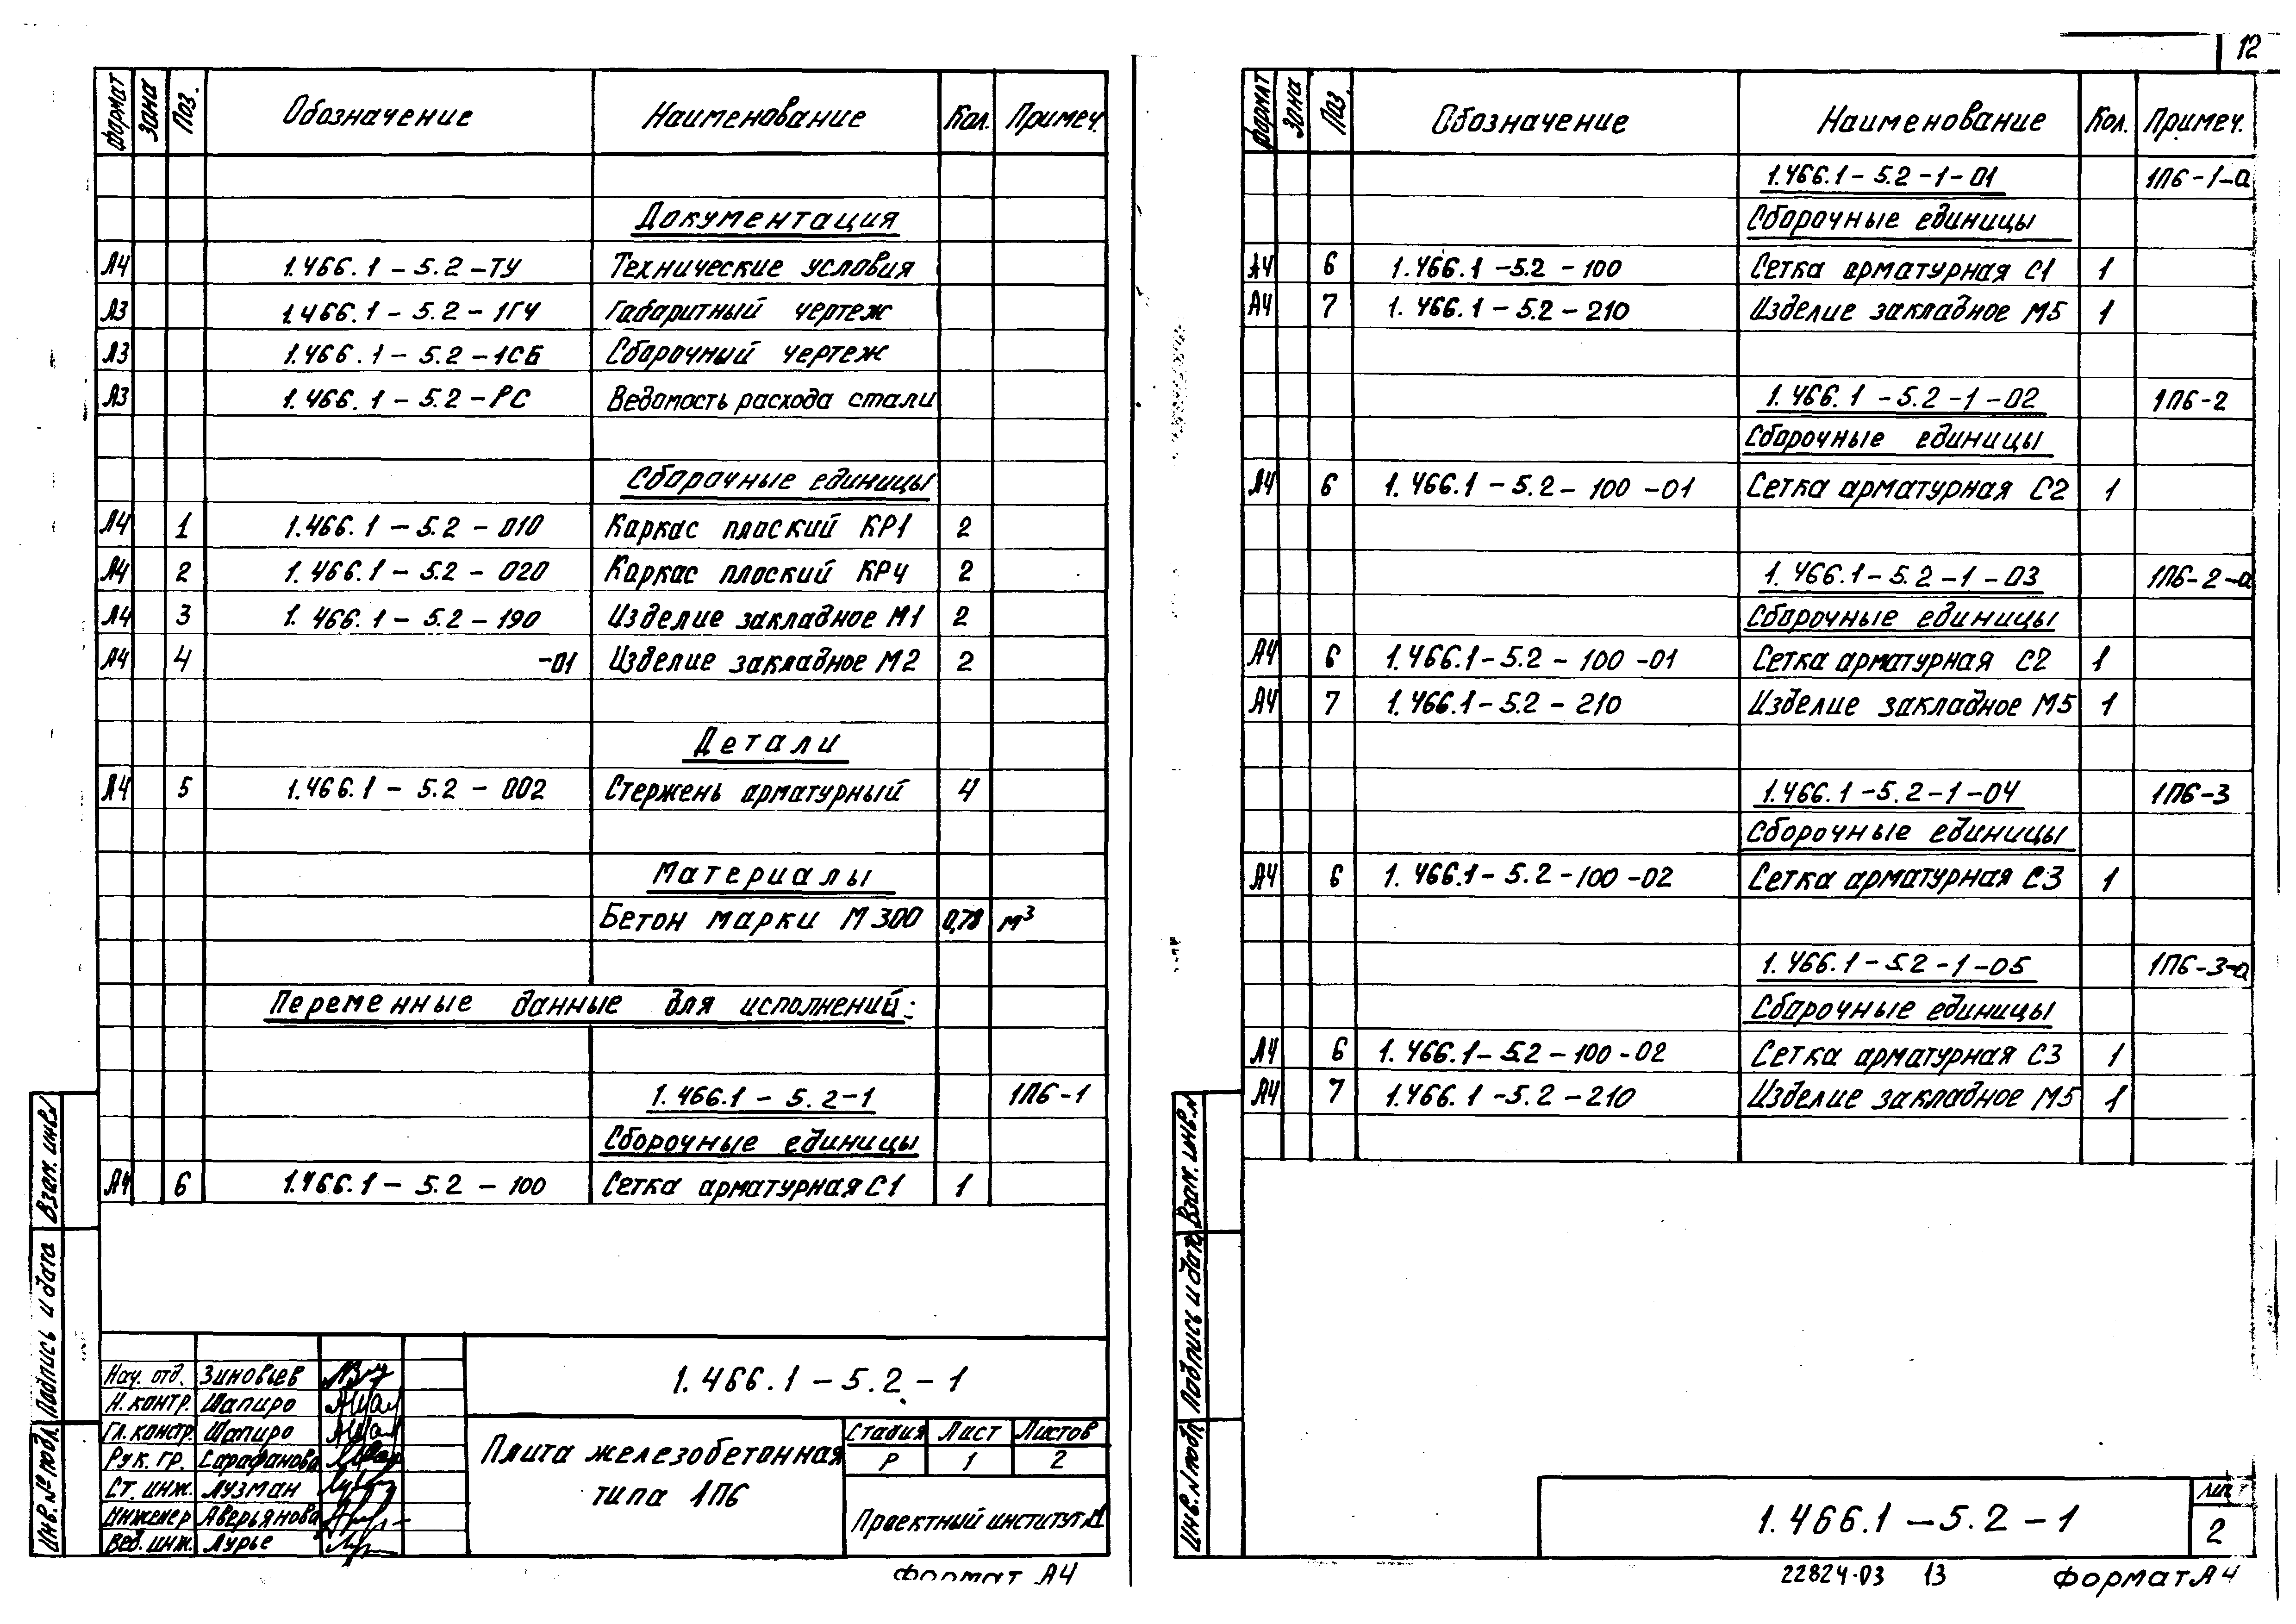 формат Зона Поз. Обозначение Наименование Кол. Примеч.
Документация
А4 1.466.1-5.2-ТУ Технические условия
А3 1.466.1-5.2-1ГЧ Габаритный чертеж
А3 1.466.1-5.2-1СБ Сборочный чертеж
А3 1.466.1-5.2-РС Ведомость расхода стали
Сборочные единицы
А4 1 1.466.1-5.2-010 Каркас плоский КР1 2
А4 2 1.466.1-5.2-020 Каркас плоский КР4 2
А4 3 1.466.1-5.2-190 Изделие закладное М1 2
А4 4 -01 Изделие закладное М2 2
Детали
А4 5 1.466.1-5.2-002 Стержень арматурный 4
Материалы
Бетон марки М300 0,78 м³
Переменные данные для исполнений:
1.466.1-5.2-1 1П6-1
Сборочные единицы
А4 6 1.466.1-5.2-100 Сетка арматурная С1 1
Взам. инв.
Подпись и дата
Инв. № подл.
Нач. отд. Зиновьев
Н. контр. Шапиро
Гл. констр. Шапиро
Рук. гр. Сарафанова
Ст. инж. Лузман
Инженер Аверьянова
Вед. инж. Лурье
1.466.1-5.2-1
Плита железобетонная
типа 1П6
Стадия Лист Листов
Р 1 2
Проектный институт №1
Формат А4
12
формат Зона Поз. Обозначение Наименование Кол. Примеч.
1.466.1-5.2-1-01 1П6-1-а
Сборочные единицы
А4 6 1.466.1-5.2-100 Сетка арматурная С1 1
А4 7 1.466.1-5.2-210 Изделие закладное М5 1
1.466.1-5.2-1-02 1П6-2
Сборочные единицы
А4 6 1.466.1-5.2-100-01 Сетка арматурная С2 1
1.466.1-5.2-1-03 1П6-2-а
Сборочные единицы
А4 6 1.466.1-5.2-100-01 Сетка арматурная С2 1
А4 7 1.466.1-5.2-210 Изделие закладное М5 1
1.466.1-5.2-1-04 1П6-3
Сборочные единицы
А4 6 1.466.1-5.2-100-02 Сетка арматурная С3 1
1.466.1-5.2-1-05 1П6-3-а
Сборочные единицы
А4 6 1.466.1-5.2-100-02 Сетка арматурная С3 1
А4 7 1.466.1-5.2-210 Изделие закладное М5 1
Взам. инв. №
Подпись и дата
Инв. № подл.
1.466.1-5.2-1
Лист
2
22824-03 13 Формат А4